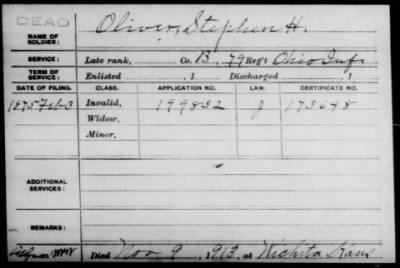 DEAD
NAME OF SOLDIER: Oliver, Stephen H.
SERVICE: Late rank, Co. B. 79 Reg't Ohio Inf.
TERM OF SERVICE: Enlisted , 1 Discharged , 1
DATE OF FILING. CLASS. APPLICATION NO. LAW. CERTIFICATE NO.
1875 Feb 3 Invalid, 199832 173648
Widow,
Minor,
ADDITIONAL SERVICES:
REMARKS:
Died Nov 9, 1913, at Wichita Kans